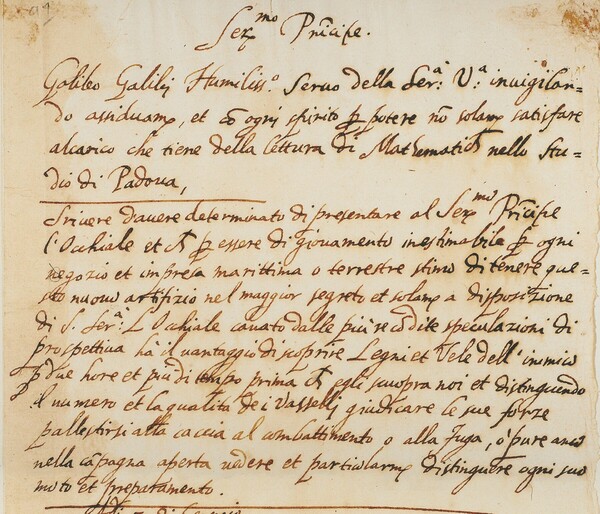 Ser.mo Prīcipe.
Galileo Galilej Humiliss.o Servo della Ser.a V.a invigilan=
do assiduam.e, et cō ogni spirito p potere nō solam.e satisfare
alcarico che tiene della lettura di Mathematiche nello stu=
dio di Padova,
Scrivere d'avere determinato di presentare al Ser.mo Prīcipe
l'Occhiale et che p essere di giovamento inestimabile p ogni
negozio et impresa marittima o terrestre stimo di tenere que=
sto nuovo artifizio nel maggior segreto et solam.e a disposizione
di S. Ser.a L'Occhiale cavato dalle più recōdite speculazioni di
prospettiva hà il vantaggio di scoprire Legni et Vele dell'inimico
p due hore et più di tempo prima che egli scuopra noi et distinguendo
il numero et la qualità de i Vasselli giudicare le sue forze
pallestirsi alla caccia al combattimento o alla fuga, ò pure anco
nella cāpagna aperta vedere et particularm.e distinguere ogni suo
moto et preparamento.